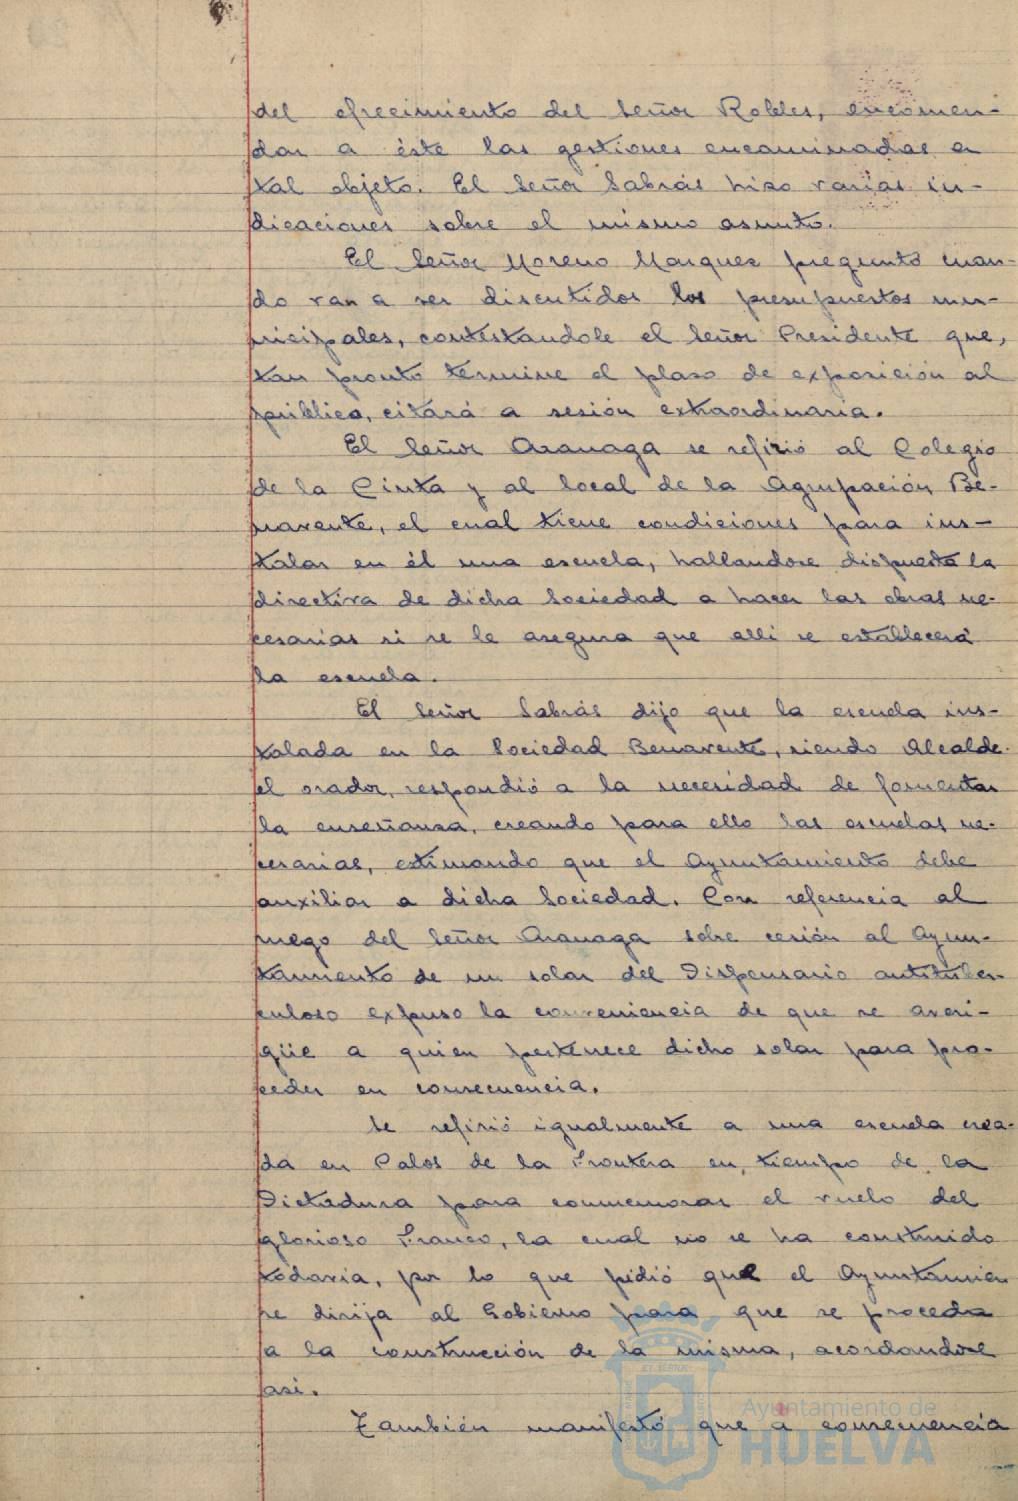 del ofrecimiento del Señor Robles, encomen-
dar a éste las gestiones encaminadas a
tal objeto. El Señor Sabrás hizo varias in-
dicaciones sobre el mismo asunto.
El Señor Moreno Marquez preguntó cuan-
do van a ser discutidos los presupuestos mu-
nicipales, contestandole el Señor Presidente que,
tan pronto termine el plazo de exposición al
público, citará a sesión extraordinaria.
El Señor Aranaga se refirió al Colegio
de la Cinta y al local de la Agrupación Be-
navente, el cual tiene condiciones para ins-
talar en él una escuela, hallandose dispuesta la
directiva de dicha Sociedad a hacer las obras ne-
cesarias si se le asegura que alli se establecerá
la escuela.
El Señor Sabrás dijo que la escuela ins-
talada en la Sociedad Benavente, siendo Alcalde
el orador, respondió a la necesidad de fomentar
la enseñanza, creando para ello las escuelas ne-
cesarias, estimando que el Ayuntamiento debe
auxiliar a dicha Sociedad. Con referencia al
ruego del Señor Aranaga sobre cesión al Ayun-
tamiento de un solar del Dispensario antituber-
culoso expuso la conveniencia de que se averi-
güe a quien pertenece dicho solar para pro-
ceder en consecuencia.
Se refirió igualmente a una escuela crea-
da en Palos de la Frontera en tiempo de la
Dictadura para conmemorar el vuelo del
glorioso Franco, la cual no se ha construido
todavia, por lo que pidió que el Ayuntamien
se dirija al Gobierno para que se proceda
a la construcción de la misma, acordandose
asi.
También manifestó que a consecuencia
Ayuntamiento de
HUELVA